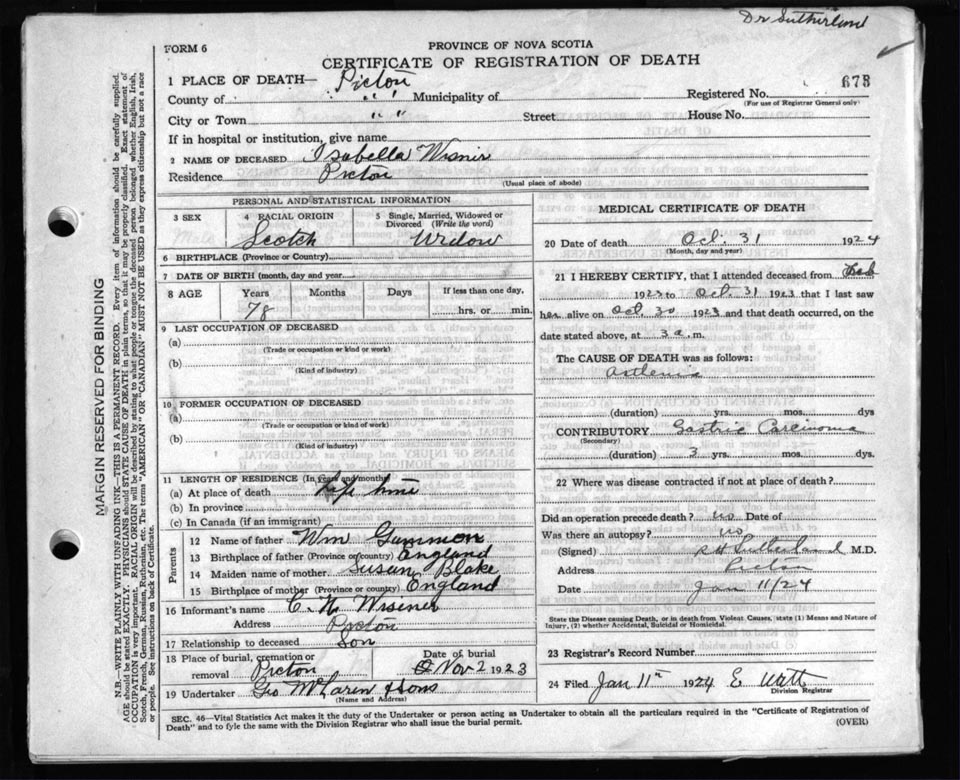 Dr Sutherland
FORM 6
PROVINCE OF NOVA SCOTIA
CERTIFICATE OF REGISTRATION OF DEATH
675
1 PLACE OF DEATH— Pictou
County of " " Municipality of Registered No.
(For use of Registrar General only)
City or Town " " Street House No.
If in hospital or institution, give name
2 NAME OF DECEASED Isabella Wisner
Residence Pictou
(Usual place of abode)
PERSONAL AND STATISTICAL INFORMATION
3 SEX 4 RACIAL ORIGIN 5 Single, Married, Widowed or Divorced (Write the word)
Scotch Widow
6 BIRTHPLACE (Province or Country)
7 DATE OF BIRTH (month, day and year)
8 AGE Years Months Days If less than one day,
78 hrs. or min.
9 LAST OCCUPATION OF DECEASED
(a)
(Trade or occupation or kind or work)
(b)
(Kind of industry)
10 FORMER OCCUPATION OF DECEASED
(a)
(Trade or occupation or kind of work)
(b)
(Kind of industry)
11 LENGTH OF RESIDENCE (In years and months)
(a) At place of death life time
(b) In province
(c) In Canada (if an immigrant)
Parents
12 Name of father Wm Gammon
13 Birthplace of father (Province or country) England
14 Maiden name of mother Susan Blake
15 Birthplace of mother (Province or country) England
16 Informant's name C. N. Wisener
Address Pictou
17 Relationship to deceased Son
18 Place of burial, cremation or removal Pictou Date of burial Nov 2 1923
19 Undertaker Geo McLaren & Sons
(Name and Address)
MEDICAL CERTIFICATE OF DEATH
20 Date of death Oct. 31 1924
(Month, day and year)
21 I HEREBY CERTIFY, that I attended deceased from Feb
1923 to Oct. 31 1923 that I last saw
her alive on Oct. 30 1923 and that death occurred, on the
date stated above, at 3 a. m.
The CAUSE OF DEATH was as follows:
Asthenia
(duration) yrs. mos. dys
CONTRIBUTORY Gastric Carcinoma
(Secondary)
(duration) 3 yrs. mos. dys.
22 Where was disease contracted if not at place of death?
Did an operation precede death? no Date of
Was there an autopsy? no
(Signed) S H Sutherland M.D.
Address Pictou
Date Jan 11/24
State the Disease causing Death, or in death from Violent Causes, state (1) Means and Nature of
Injury, (2) whether Accidental, Suicidal or Homicidal.
23 Registrar's Record Number
24 Filed Jan 11th 1924 E Watt
Division Registrar
SEC. 46—Vital Statistics Act makes it the duty of the Undertaker or person acting as Undertaker to obtain all the particulars required in the "Certificate of Registration of
Death" and to fyle the same with the Division Registrar who shall issue the burial permit.
(OVER)
MARGIN RESERVED FOR BINDING
N.B.—WRITE PLAINLY WITH UNFADING INK—THIS IS A PERMANENT RECORD. Every item of information should be carefully supplied.
AGE should be stated EXACTLY. PHYSICIANS should STATE CAUSE OF DEATH in plain terms, so that it may be properly classified. Exact statement of
OCCUPATION is very important. RACIAL ORIGIN will be described by stating to what people or tongue the deceased person belonged whether English, Irish,
Scotch, French, German, Russian, Ruthenian, etc. The terms "AMERICAN" OR "CANADIAN" MUST NOT BE USED as they express citizenship but not a race
or people. See instructions on back of Certificate.